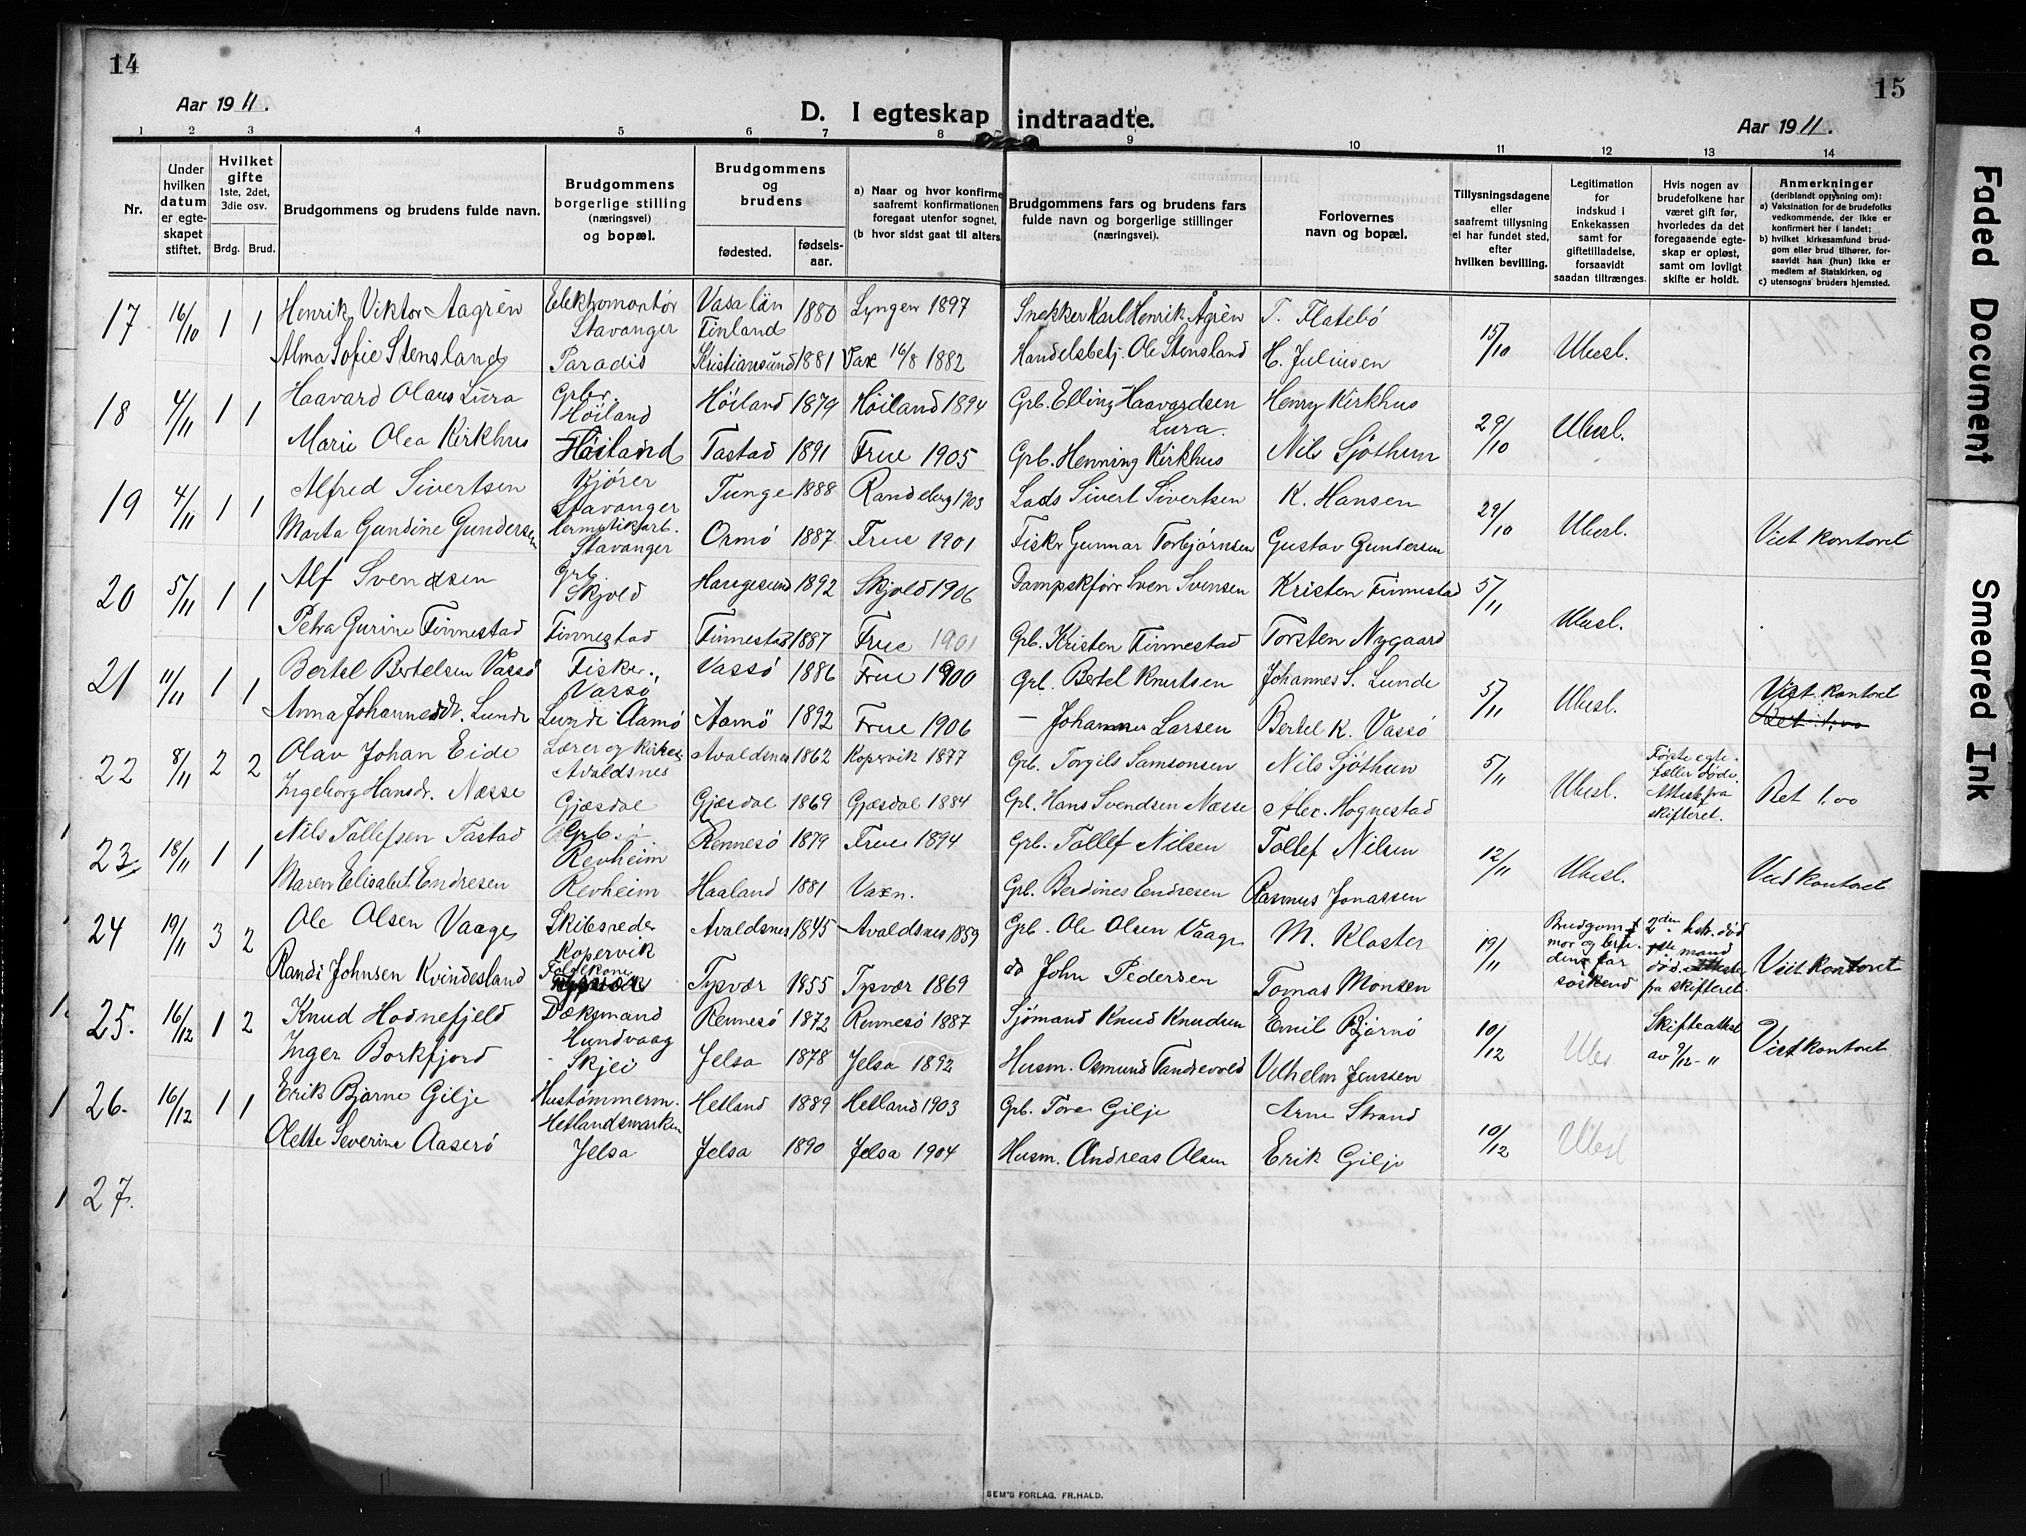 14
15
Aar 1911.
D. I egteskap indtraadte.
Aar 1911.
1 2 3 4 5 6 7 8 9 10 11 12 13 14
Nr.
Under hvilken datum er egteskapet stiftet.
Hvilket gifte
1ste, 2det, 3die osv.
Brdg. Brud.
Brudgommens og brudens fulde navn.
Brudgommens borgerlige stilling (næringsvei) og bopæl.
Brudgommens og brudens
fødested.
fødselsaar.
a) Naar og hvor konfirme
saafremt konfirmationen
foregaat utenfor sognet,
(b hvor sidst gaat til alters.
Brudgommens fars og brudens fars
fulde navn og borgerlige stillinger
(næringsvei).
Forlovernes
navn og bopæl.
Tillysningsdagene
eller
saafremt tillysning
ei har fundet sted,
efter
hvilken bevilling.
Legitimation
for
indskud i
Enkekassen
samt for
giftetilladelse,
forsaavidt
saadan tiltrænges.
Hvis nogen av
brudefolkene har
været gift før,
hvorledes da det
foregaaende egte-
skap er opløst,
samt om lovligt
skifte er holdt.
Anmerkninger
(deriblandt oplysning om):
a) Vaksination for de brudefolks
vedkommende, der ikke er
konfirmert her i landet;
b) hvilket kirkesamfund brud-
gom eller brud tilhører, for-
saavidt han (hun) ikke er
medlem af Statskirken, og
c) utensogns bruders hjemsted.
17 16/10 1 1 Henrik Viktor Aagrén Elektromontør Stavanger Vasa län Finland 1880 Lyngen 1897 Snekker Karl Henrik Ågrén T. Flatebö 15/10 Ubesl.
Alma Sofie Stensland Paradis Kristiansund 1881 Vax 16/8 1882 Handelsbetj. Ole Stensland H. Juliusen
18 4/11 1 1 Haavard Olaus Lura Grbr. Høiland Høiland 1879 Høiland 1894 Grb. Elling Haavardsen Lura. Henry Kirkhus 29/10 Ubesl.
Marie Olea Kirkhus Høiland Tastad 1891 Frue 1905 Grb. Henning Kirkhus Nils Sjøthun
19 4/11 1 1 Alfred Sivertsen Kjører Stavanger Tunge 1888 Randeberg 1903 Lods Sivert Sivertsen K. Hansen 29/10 Ubesl.
Marta Gundine Gundersen Hermetikarb. Stavanger Ormö 1887 Frue 1901 Fisker Gunnar Torbjørnsen Gustav Gundersen Viet kontoret
20 5/11 1 1 Alf Svendsen Grb. Skjold Haugesund 1892 Skjold 1906 Dampskfører Sven Svensen Kristen Finnestad 5/11 Ubesl.
Petra Gurine Finnestad Finnestad Finnestad 1887 Frue 1901 Grb. Kristen Finnestad Torsten Nygaard
21 11/11 1 1 Bertel Bertelsen Vassö Fisker Vassö Vassö 1886 Frue 1900 Grb. Bertel Knutsen Johannes S. Lunde 5/11 Ubesl. Viet kontoret
Anna Johannesdr. Lunde Lunde Aamö Aamö 1892 Frue 1906 — Johannes Larsen Bertel K. Vassö Ret 1,00
22 8/11 2 2 Olav Johan Eide Lærer og kirkes. Avaldsnes Avaldsnes 1862 Kopervik 1877 Grb. Torgils Samsonsen Nils Sjøthun 5/11 Ubesl. Første egtefæller døde. Attest fra skifteret. Ret 1,00
Ingeborg Hansdr. Næsse Gjæsdal Gjæsdal 1869 Gjæsdal 1884 Grb. Hans Svendsen Næsse Alex. Hognestad
23 18/11 1 1 Nils Tollefsen Tastad Grb. Revheim Rennesö 1879 Frue 1894 Grb. Tollef Nilsen Tollef Nilsen 12/11 Ubesl. Vied kontoret
Maren Elisabet Endresen Revheim Haaland 1881 Vaxn. Grb. Berdines Endresen Rasmus Jonassen
24 19/11 3 2 Ole Olsen Vaage Skibsreder Kopervik Avaldsnes 1845 Avaldsnes 1859 Grb. Ole Olsen Vaage M. Kloster 19/11 Brudgoms mor og brudens far söskend 2den hstr. død 1ste mand død. attester fra skifteret. Viet kontoret
Randi Johnsen Kvindesland Foldekone Tysvær 1855 Tysvær 1869 do John Pedersen Tomas Monsen
25. 16/12 1 2 Knud Hodnefjeld Dæksmand Hundvaag Rennesö 1872 Rennesö 1887 Sjömand Knud Knudsen Emil Bjørnö 10/12 Ubes Skifteattest av 9/12-11 Viet kontoret
Inger Borkfjord Skjei Jelsa 1878 Jelsa 1892 Husm. Osmund Tandrevold Vilhelm Jenssen
26. 16/12 1 1 Erik Bjarne Gilje Hustømmerm. Hetlandsmarken Hetland 1889 Hetland 1903 Grb. Tore Gilje Arne Strand 10/12 Ubesl
Olette Severine Aaserö Jelsa Jelsa 1890 Jelsa 1904 Husm. Andreas Olsen Erik Gilje
27.
SEM'S FORLAG. FR.HALD.
Faded Document
Smeared Ink